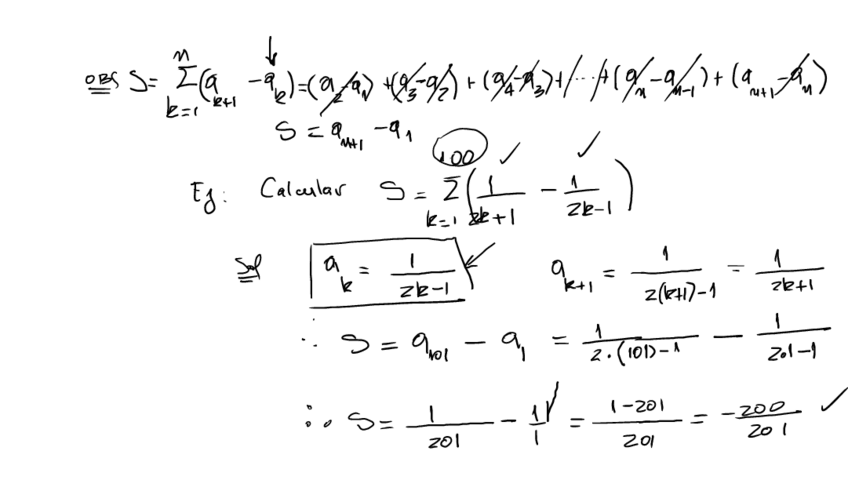 OBS S = Σ_{k=1}^{n} (a_{k+1} - a_k) = (a_2 - a_1) + (a_3 - a_2) + (a_4 - a_3) + ... + (a_n - a_{n-1}) + (a_{n+1} - a_n)
S = a_{n+1} - a_1
Ej: Calcular S = Σ_{k=1}^{100} (1/(2k+1) - 1/(2k-1))
Sol a_k = 1/(2k-1) a_{k+1} = 1/(2(k+1)-1) = 1/(2k+1)
∴ S = a_{101} - a_1 = 1/(2·(101)-1) - 1/(2·1-1)
∴ S = 1/201 - 1/1 = (1-201)/201 = -200/201